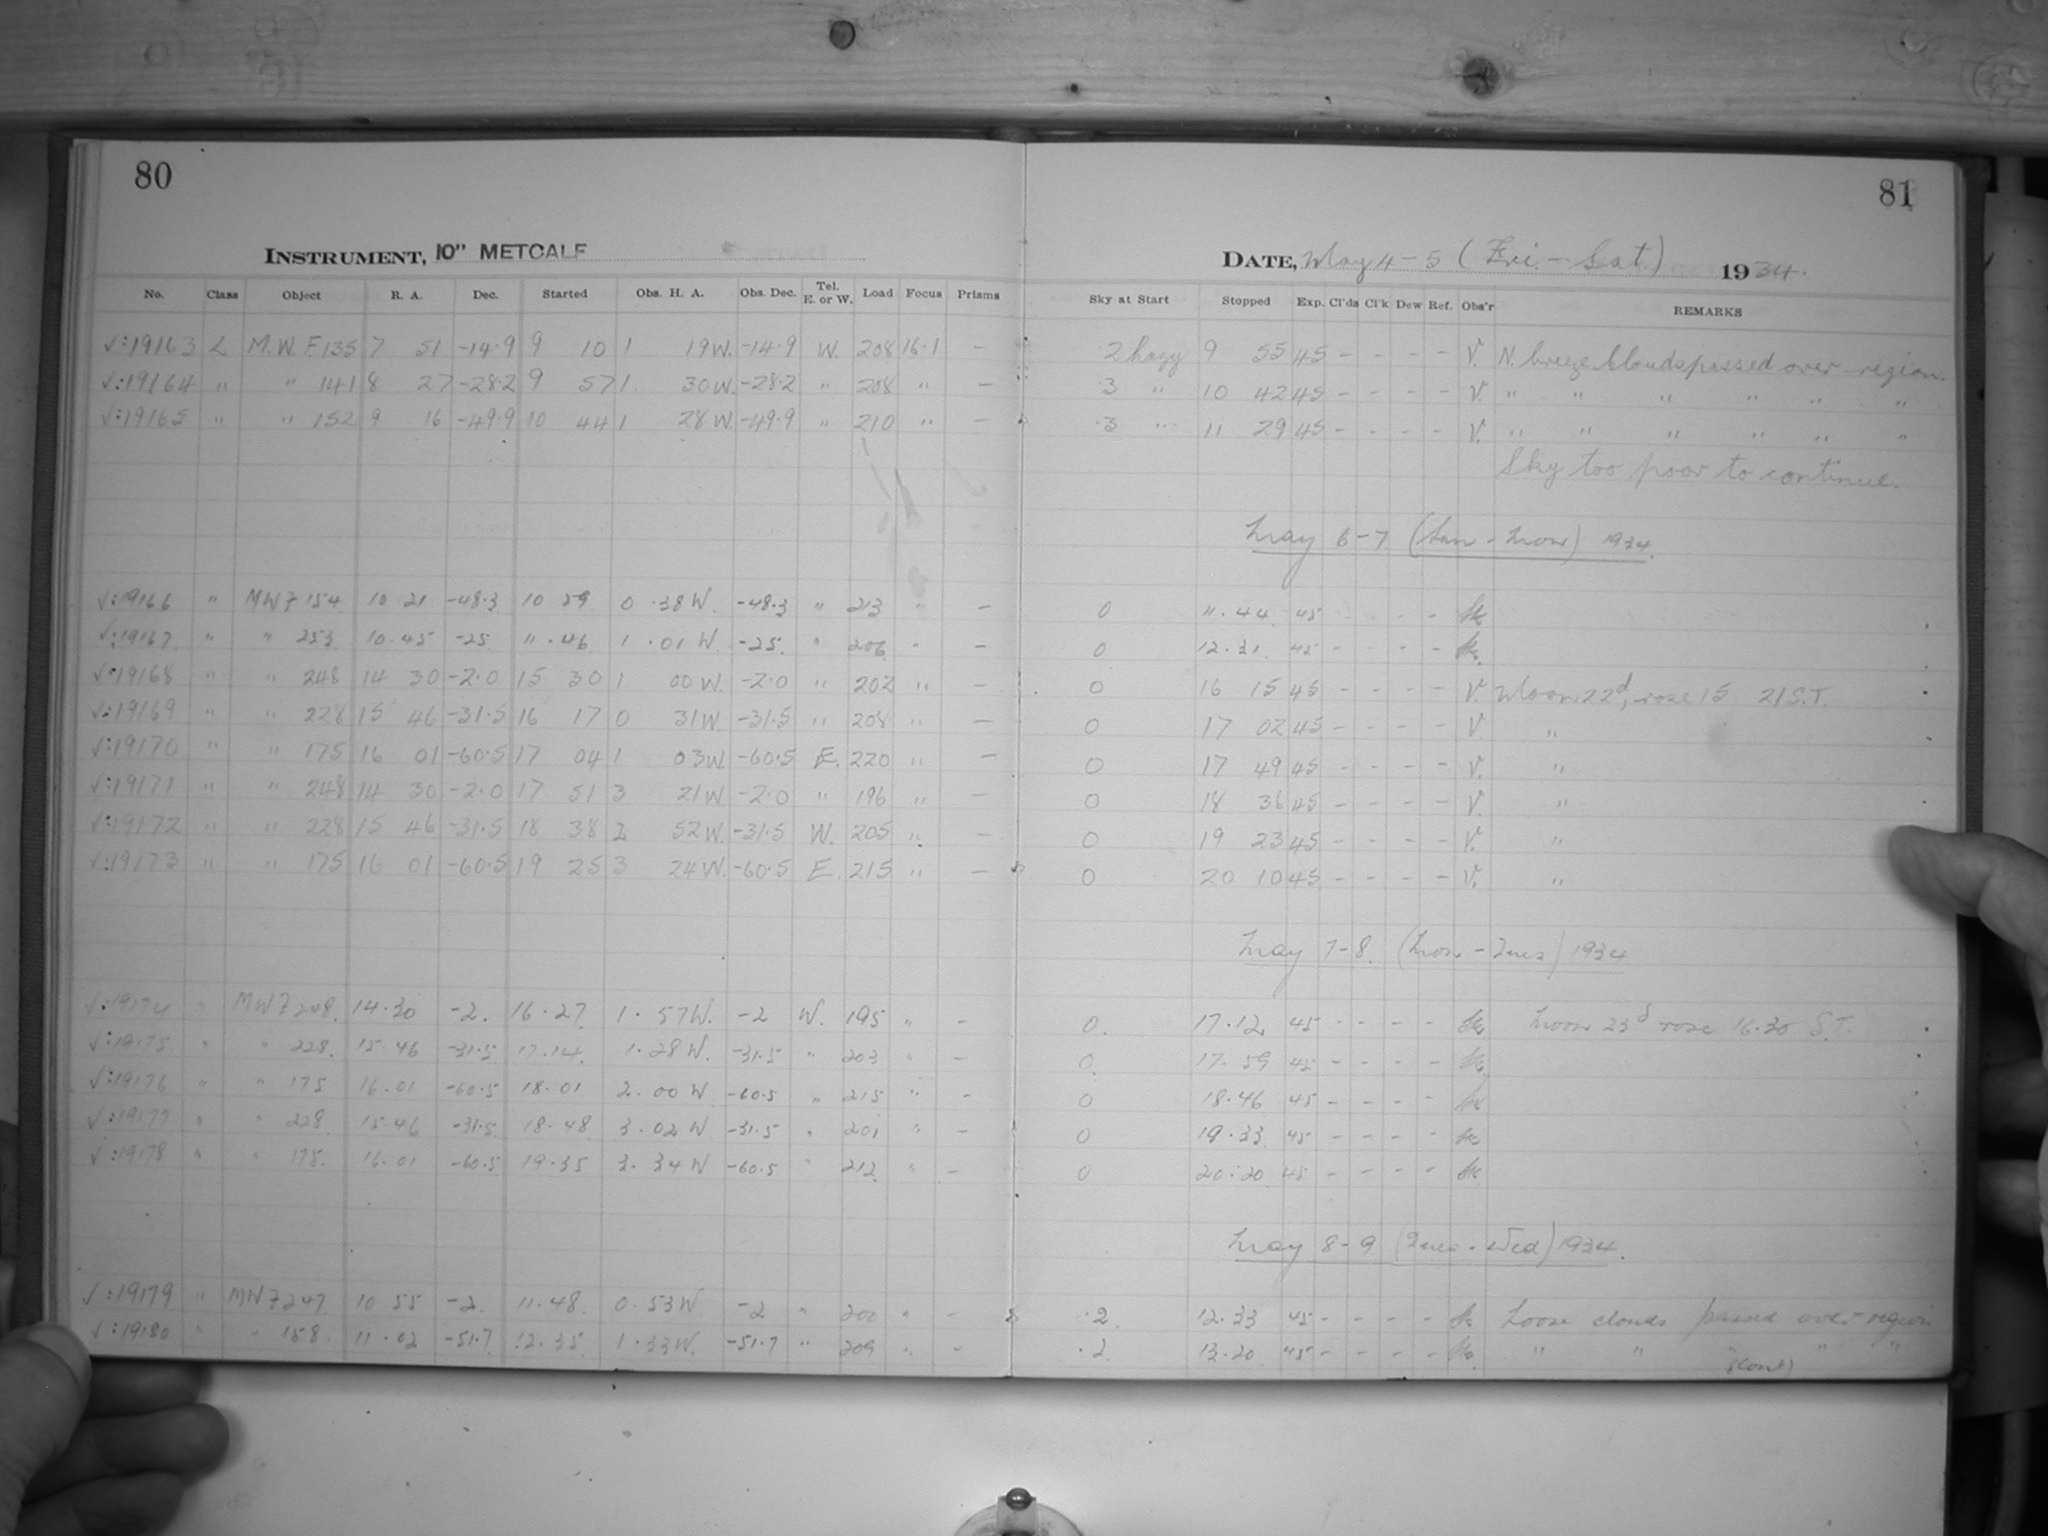 80
81
INSTRUMENT, 10" METCALF
DATE, May 4-5 (Fri. - Sat.) 1934.
No. Class Object R. A. Dec. Started Obs. H. A. Obs. Dec. Tel. E. or W. Load Focus Prisms Sky at Start Stopped Exp. Cl'ds Cl'k Dew Ref. Obs'r REMARKS
√:19163 L M.W.F. 135 7 51 -14.9 9 10 1 19W. -14.9 W. 208 16.1 - .2 hazy 9 55 45 - - - - V. N. breeze. Clouds passed over region.
√:19164 " " 141 8 27 -28.2 9 57 1 30W. -28.2 " 208 " - .3 " 10 42 45 - - - - V. " " " " " "
√:19165 " " 152 9 16 -49.9 10 44 1 28W. -49.9 " 210 " - .3 " 11 29 45 - - - - V. " " " " " "
Sky too poor to continue.
May 6-7 (Sun - Mon) 1934.
√:19166 " MWF 154 10 21 -48.3 10 59 0.38W. -48.3 " 213 " - 0 11.44 45 - - - -
√:19167 " " 253 10.45 -25 11.46 1.01W. -25. " 206 " - 0 12.31 45 - - - -
√:19168 " " 248 14 30 -2.0 15 30 1 00W. -2.0 " 202 " - 0 16 15 45 - - - - V. Moon 22d, rose 15 21 S.T.
√:19169 " " 228 15 46 -31.5 16 17 0 31W. -31.5 " 208 " - 0 17 02 45 - - - - V. "
√:19170 " " 175 16 01 -60.5 17 04 1 03W. -60.5 E. 220 " - 0 17 49 45 - - - - V. "
√:19171 " " 248 14 30 -2.0 17 51 3 21W. -2.0 " 196 " - 0 18 36 45 - - - - V. "
√:19172 " " 228 15 46 -31.5 18 38 2 52W. -31.5 W. 205 " - 0 19 23 45 - - - - V. "
√:19173 " " 175 16 01 -60.5 19 25 3 24W. -60.5 E. 215 " - 0 20 10 45 - - - - V. "
May 7-8. (Mon - Tues) 1934
√:19174 " MWF 248. 14.30 -2. 16.27 1.57W. -2 W. 195 " - 0. 17.12 45 - - - - Moon 23d rose 16.30 S.T.
√:19175 " " 228. 15.46 -31.5 17.14. 1.28W. -31.5 " 203 " - 0. 17.59 45 - - - -
√:19176 " " 175 16.01 -60.5 18.01 2.00W -60.5 " 215 " - 0 18.46 45 - - - -
√:19177 " " 228 15.46 -31.5 18.48 3.02W -31.5 " 201 " - 0 19.33 45 - - - -
√:19178 " " 175. 16.01 -60.5 19.35 3.34W -60.5 " 212 " - 0 20.20 45 - - - -
May 8-9 (Tues - Wed) 1934.
√:19179 " MWF 247 10 55 -2. 11.48. 0.53W -2 " 200 " - .2. 12.33 45 - - - - Loose clouds passed over region
√:19180 " " 158. 11.02 -51.7 12.35. 1.33W. -51.7 " 209 " - .2 13.20 45 - - - - " " " " "
(Cont)